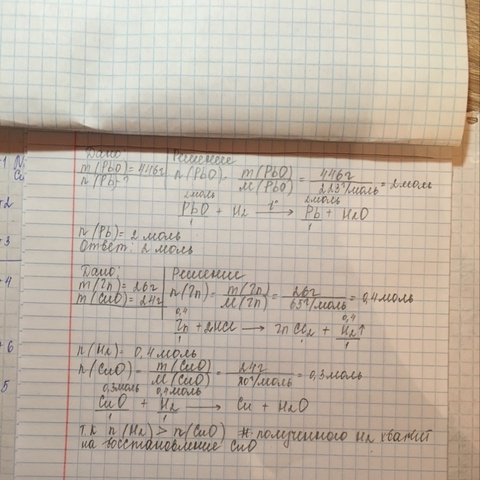 Дано
Решение
m(PbO)=446г
n(PbO)= m(PbO)/M(PbO) = 446г/223г/моль = 2моль
n(Pb)-?
2моль 2моль
PbO + H₂ t°→ Pb + H₂O
1 1
n(Pb)=2моль
Ответ: 2 моль
Дано:
Решение
m(Zn)=26г
m(CuO)=24г
n(Zn)= m(Zn)/M(Zn) = 26г/65г/моль = 0,4моль
0,4 0,4
Zn + 2HCl → ZnCl₂ + H₂↑
1 1
n(H₂)= 0,4моль
n(CuO)= m(CuO)/M(CuO) = 24г/80г/моль = 0,3моль
0,3моль 0,4моль
CuO + H₂ → Cu + H₂O
1 1
т.к n(H₂) > n(CuO) полученного H₂ хватит
на восстановление CuO